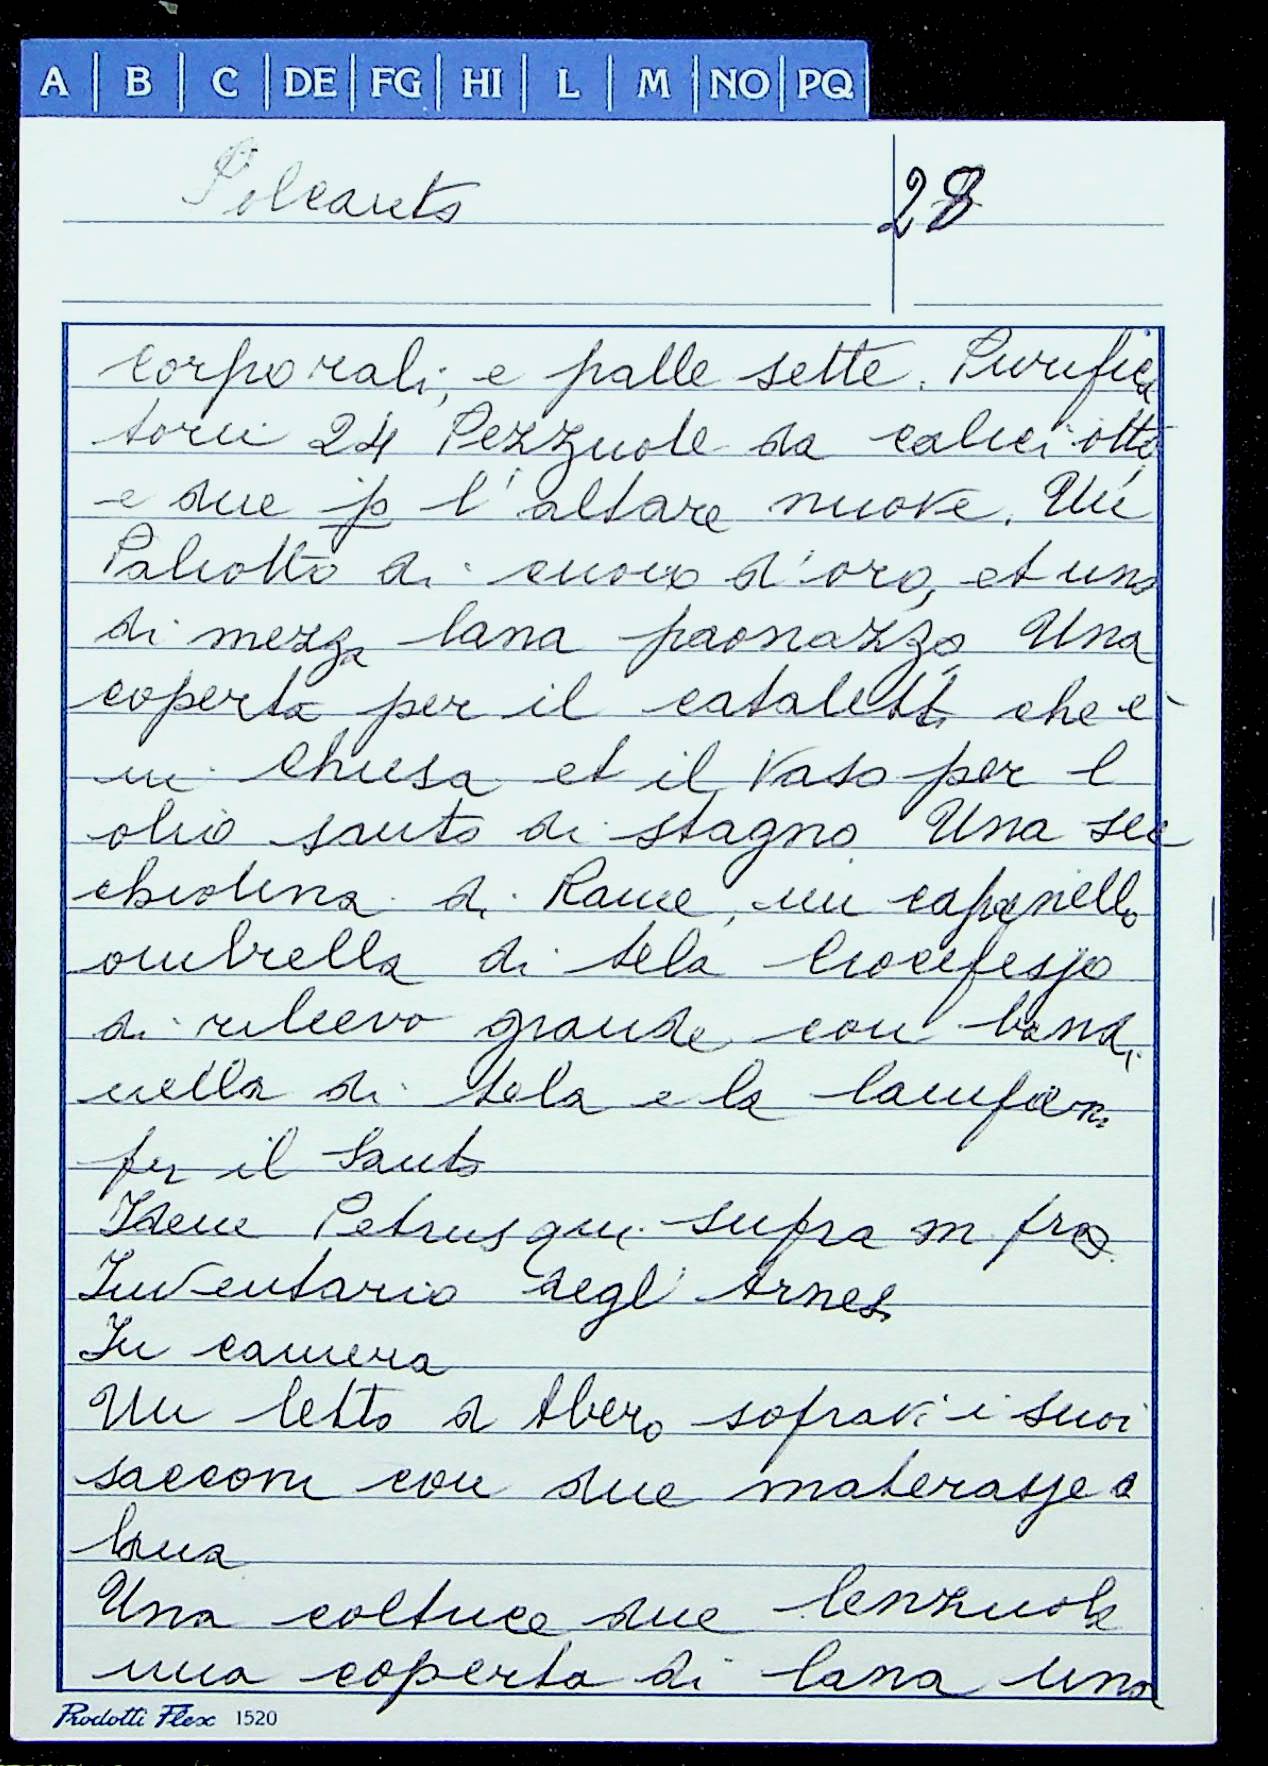 A | B | C | DE | FG | HI | L | M | NO | PQ
Polcanto 28
corporali, e palle sette. Purifica
torii 24 Pezzuole da calici otto
e due p l'altare nuove. Un
Paliotto di cuoio d'oro, et uno
di mezza lana paonazzo Una
coperta per il cataletto che è
in Chiesa et il vaso per l
olio santo di stagno Una sec
chiolina di Rame, un
ombrella di tela Crocefesso
di rilievo grande con bandi
nella di tela e la
per il Santo
Idem Petrus qui supra m pro
Inventario degl' Arnesi
In camera
Un letto d Abero sopravi i suoi
sacconi con due materasse
lana
Una coltrice due lenzuola
una coperta di lana una
Prodotti Flex 1520